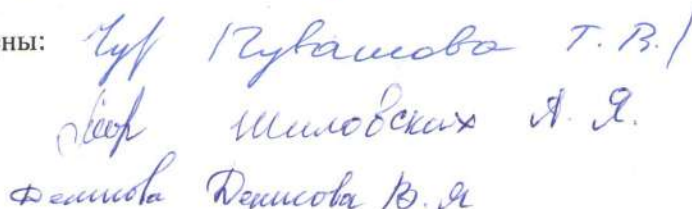 ены: Чувашова Т.В./
Шиловских А.Я.
Денисова Денисова В.Я